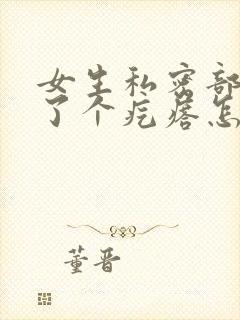 女生私密部
了个疙瘩怎
董晋